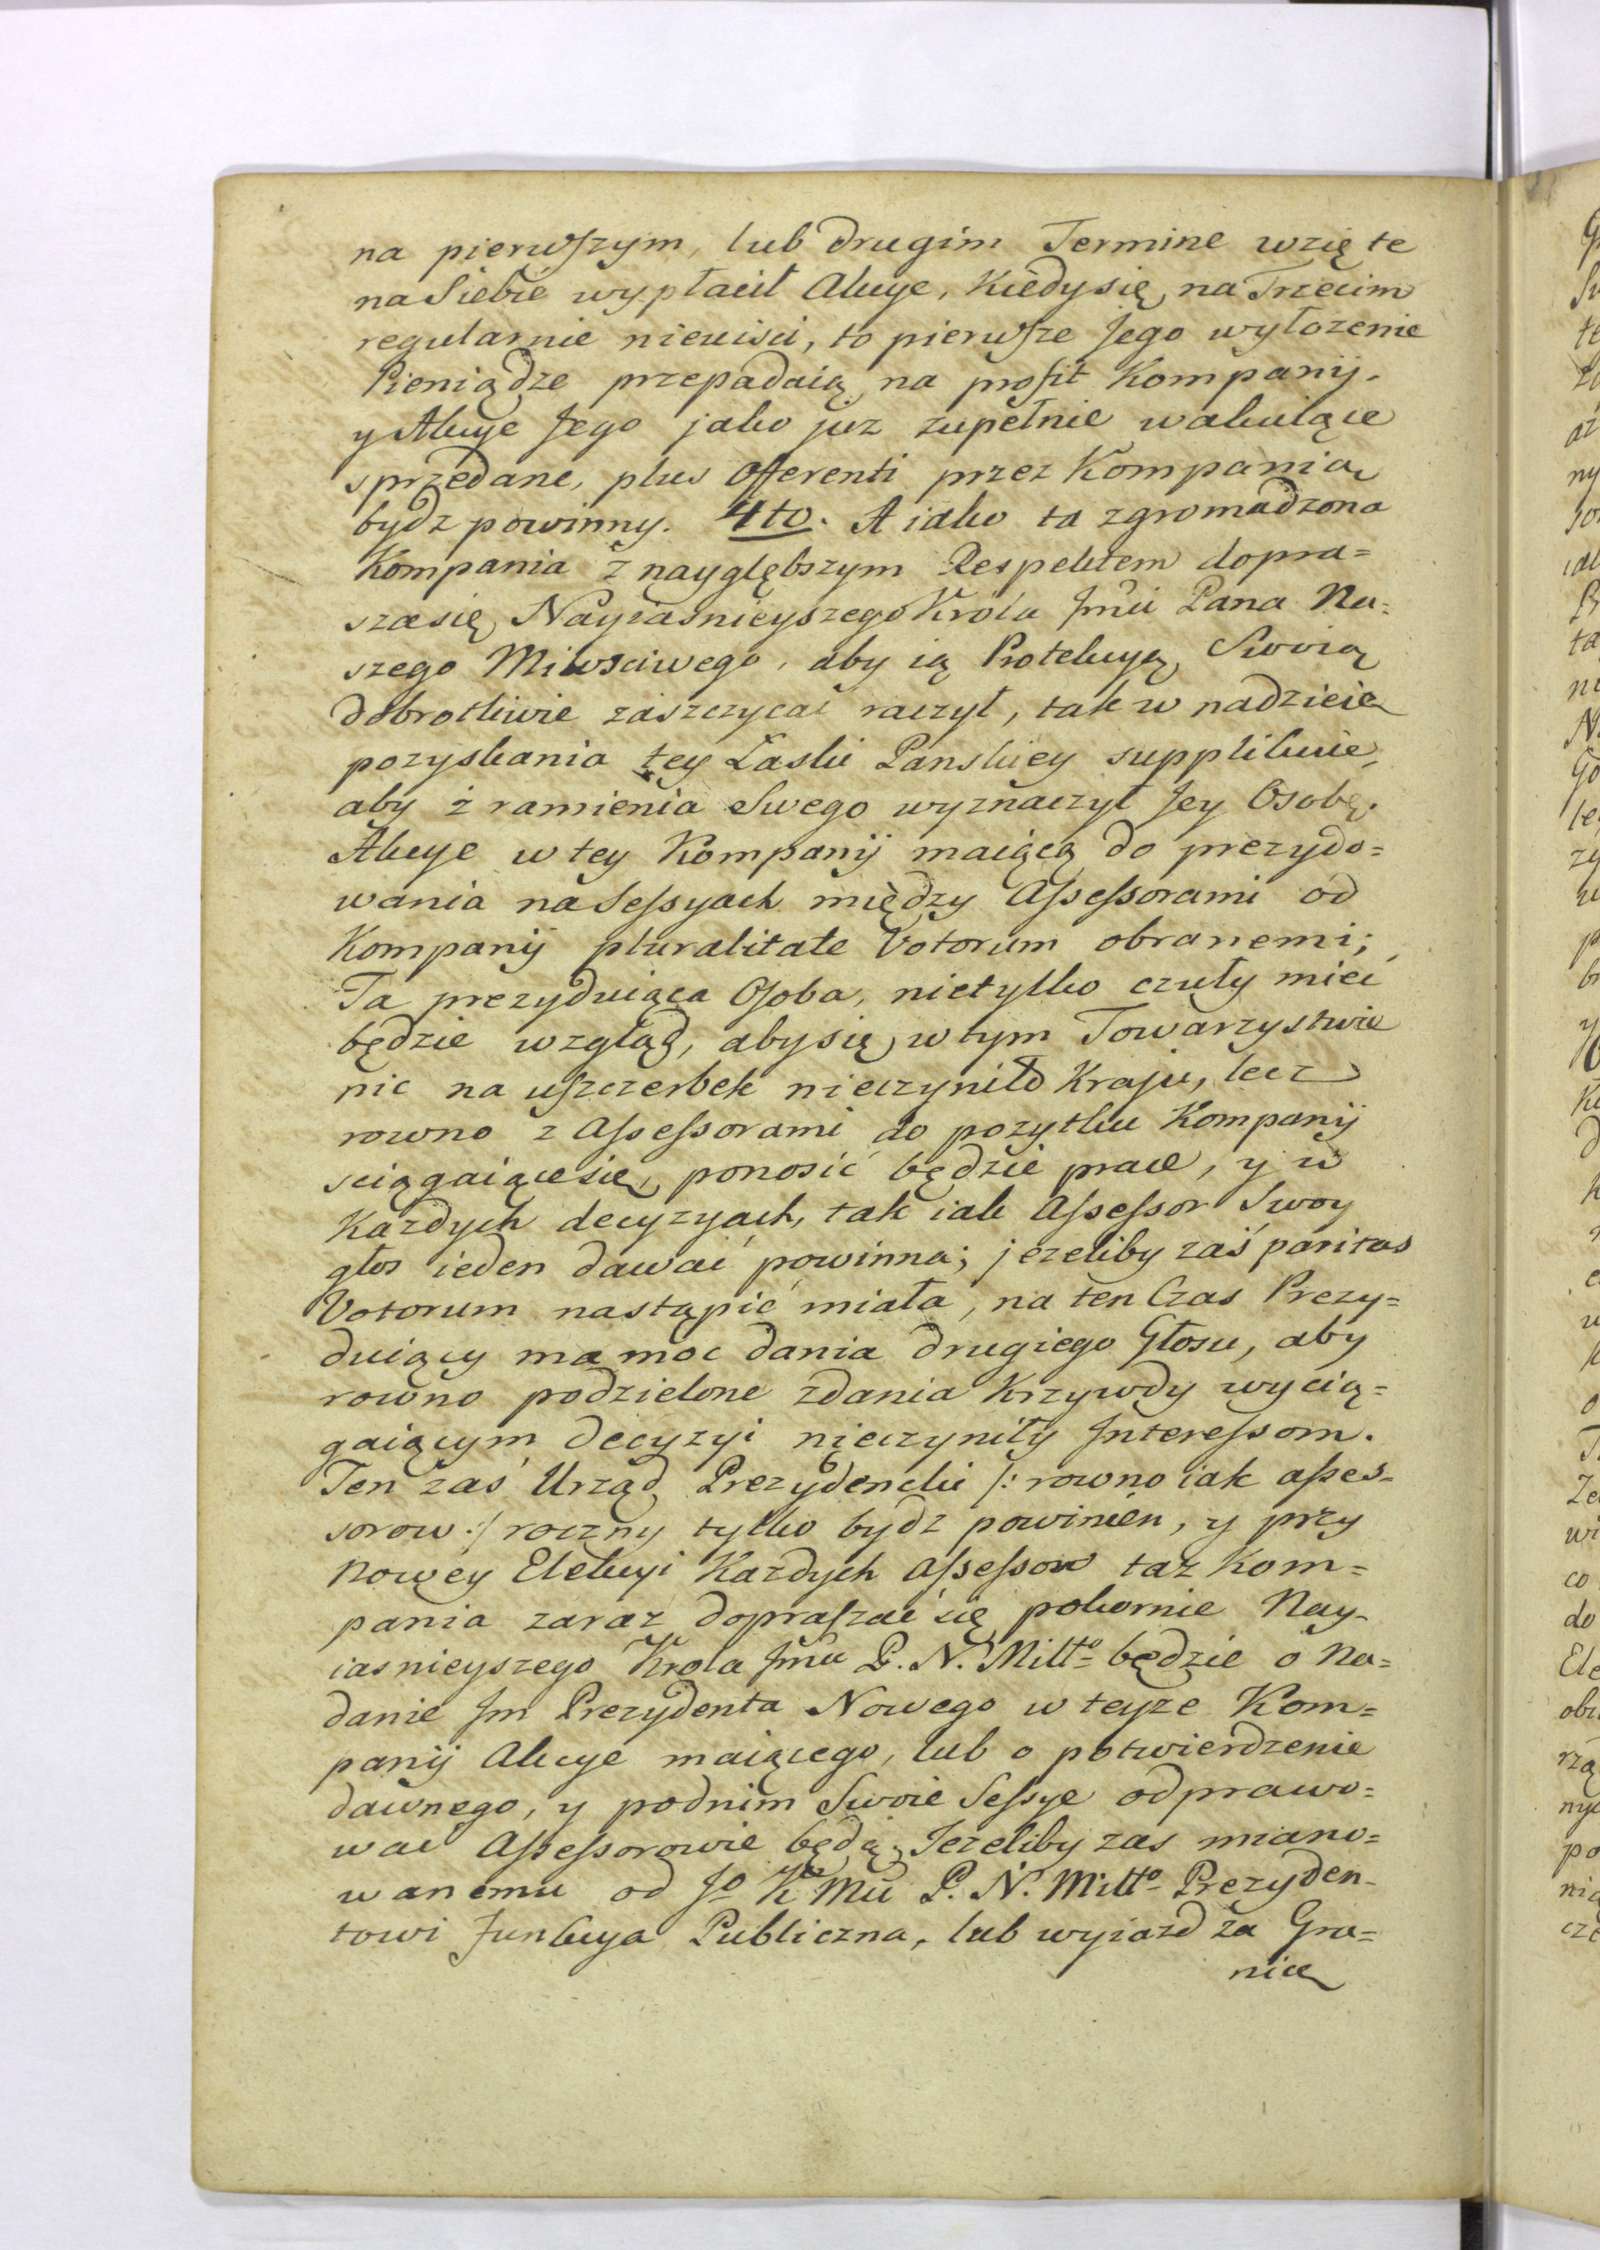 na pierwszym, lub drugim Termine wzięte
na Siebie wypłacił Akcye, kiedysię na Trzecim
regularnie nieuisci, to pierwsze Jego wyłozenie
Pieniądze przepadaią na profit Kompanij.
y Akcye Jego jako juz zupełnie wakuiące
sprzedane, plus Offerenti przez Kompanią
bydz powinny. 4to. A iako ta zgromadzona
Kompania z naygłębszym Respektem dopra=
szasię Nayiasnieyszego Krola Jmci Pana Na=
szego Miłosciwego, aby ią Protekcyą Swoią
dobrotliwie zaszczycać raczył, tak w nadzieię
pozyskania tey Łaski Panskiey supplikuie,
aby z ramienia Swego wyznaczył Jey Osobę.
Akcye w tey Kompanij maiącą do prezydo=
wania na Sessyach między Assessorami od
Kompanij pluralitate Votorum obranemi;
Ta prezyduiąca Osoba, nietylko czuły mieć
będzie wzgląd, abysię w tym Towarzystwie
nic na uszczerbek nieczyniło Kraju, lecz
rowno z Assessorami do pozytku Kompanij
sciągaiącesię, ponosić będzie prace, y w
Kazdych decyzyach, tak iak Assessor Swoy
głos ieden dawać powinna; jezeliby zaś paritas
Votorum nastąpić miała, na ten Czas Prezy=
duiący ma moc dania drugiego Głosu, aby
rowno podzielone zdania Krzywdy wycią=
gaiącym decyzyi nieczyniły Interessom.
Ten zaś Urząd Prezydencki /: rowno iak asses=
sorow :/ roczny tylko bydz powinien, y przy
Nowey Elekcyi Kazdych Assessow taz Kom=
pania zaraz dopraszać się pokornie Nay=
iasnieyszego Krola Jmci P. N. Miłło będzie o Na=
danie Jm Prezydenta Nowego w teyze Kom=
panij Akcye maiącego, lub o potwierdzenie
dawnego, y podnim Swoie Sessye odprawo=
wac Assessorowie będą. Jezeliby zas miano=
wanemu od Jo K Mci P. N. Miłło Prezyden=
towi Funkcya Publiczna, lub wyiazd za Gra=
nicę